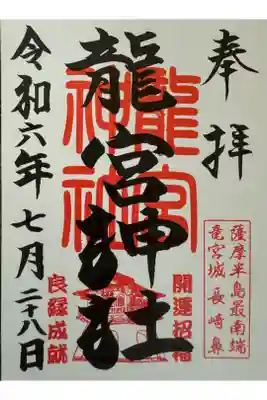 奉拝
薩摩半島最南端
竜宮城長崎鼻
龍宮神社
龍宮
神社
開運招福
良縁成就
令和六年七月二十八日